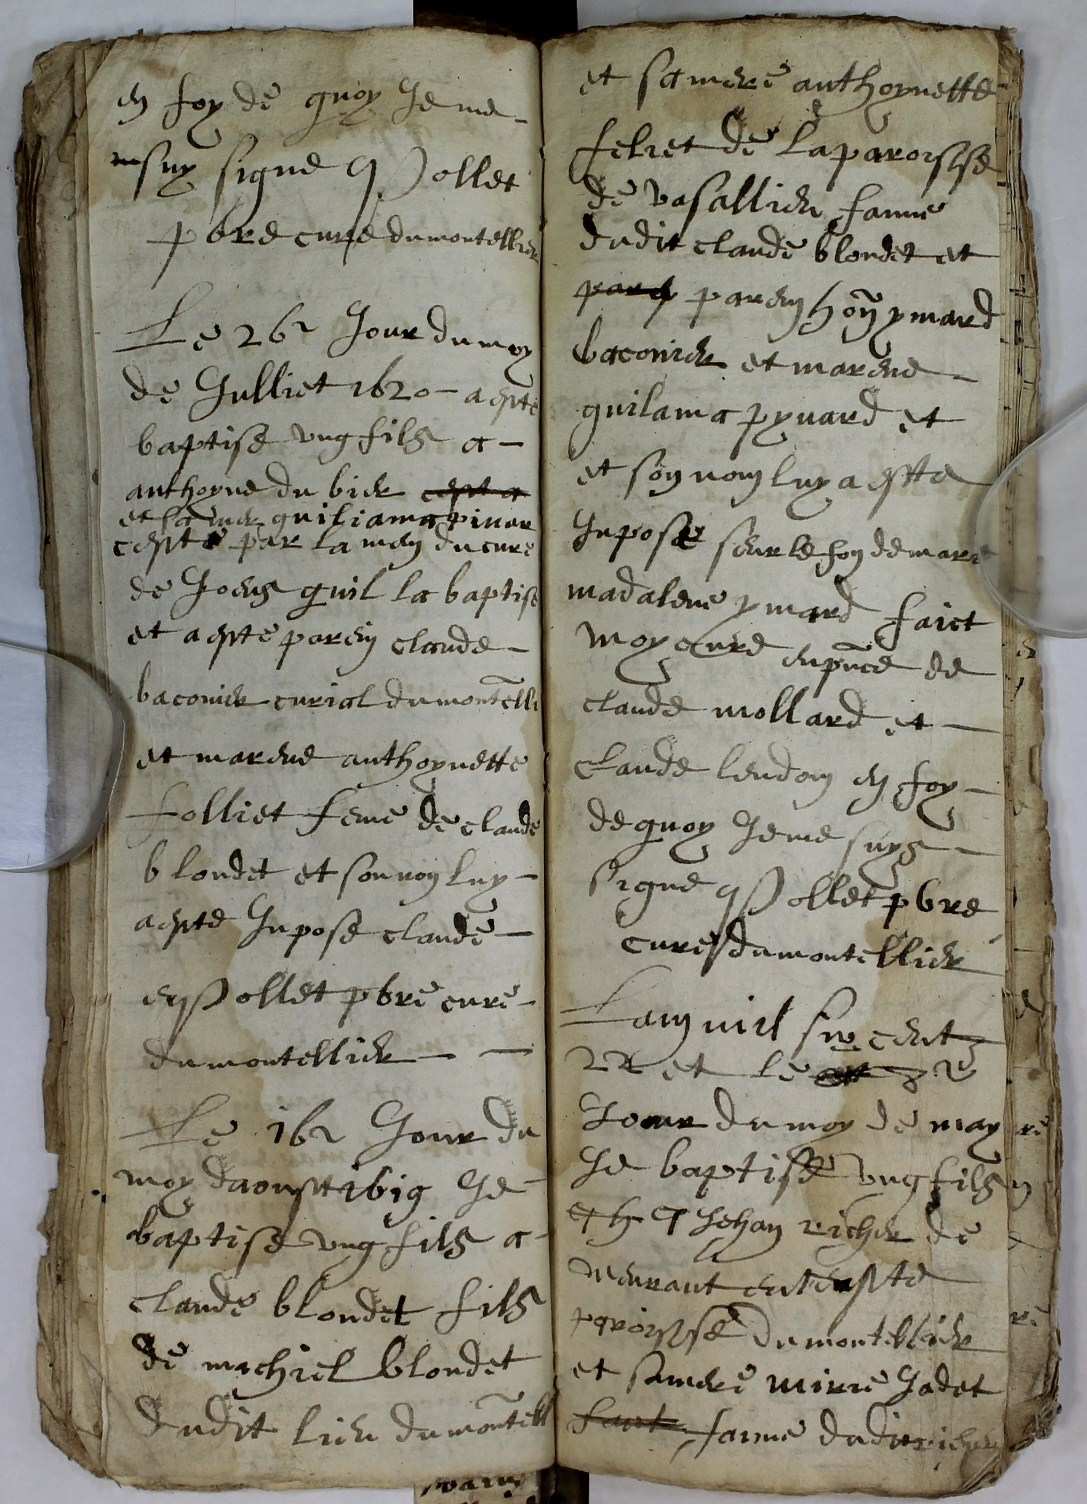 en foy de quoy Je me
suy signe Pollet
pbre cure du montellier
Le 26e Jour du moy
de Julliet 1620 a este
baptise ung fils a
anthoyne du bier
et sa mere guiliama pinar
ceste par la main du cure
de Joeus quil la baptise
et a este parein claude
baconier curial du montelli
et mareine anthoynette
folliet feme de claude
blondet et son noy luy
a este Inpose claude
Pollet pbre cure
du montellier
Le 16e Jour du
moy daoust 1619 Je
baptise ung fils a
claude blondet fils
de michiel blondet
dudit lieu du montell
et sa mere anthoynette
feliet de la paroisse
de vasallieu fame
dudit claude blondet et
parein honymard
baconier et mareine
guilama pynard et
et son nom luy a este
Inpose seur le foy de marie
madalene ymard faict
moy cure en pnce de
claude mollard et
claude lendoin en foy
de quoy Je me suys
signe Pollet pbre
cure du montellier
Lan mil six cent
22 et le
Jour du moy de may
Je baptise ung fils
a Jehan richer de
meurant en ceste
paroisse du montellier
et sa mere mirie Jadet
fame dudit richer